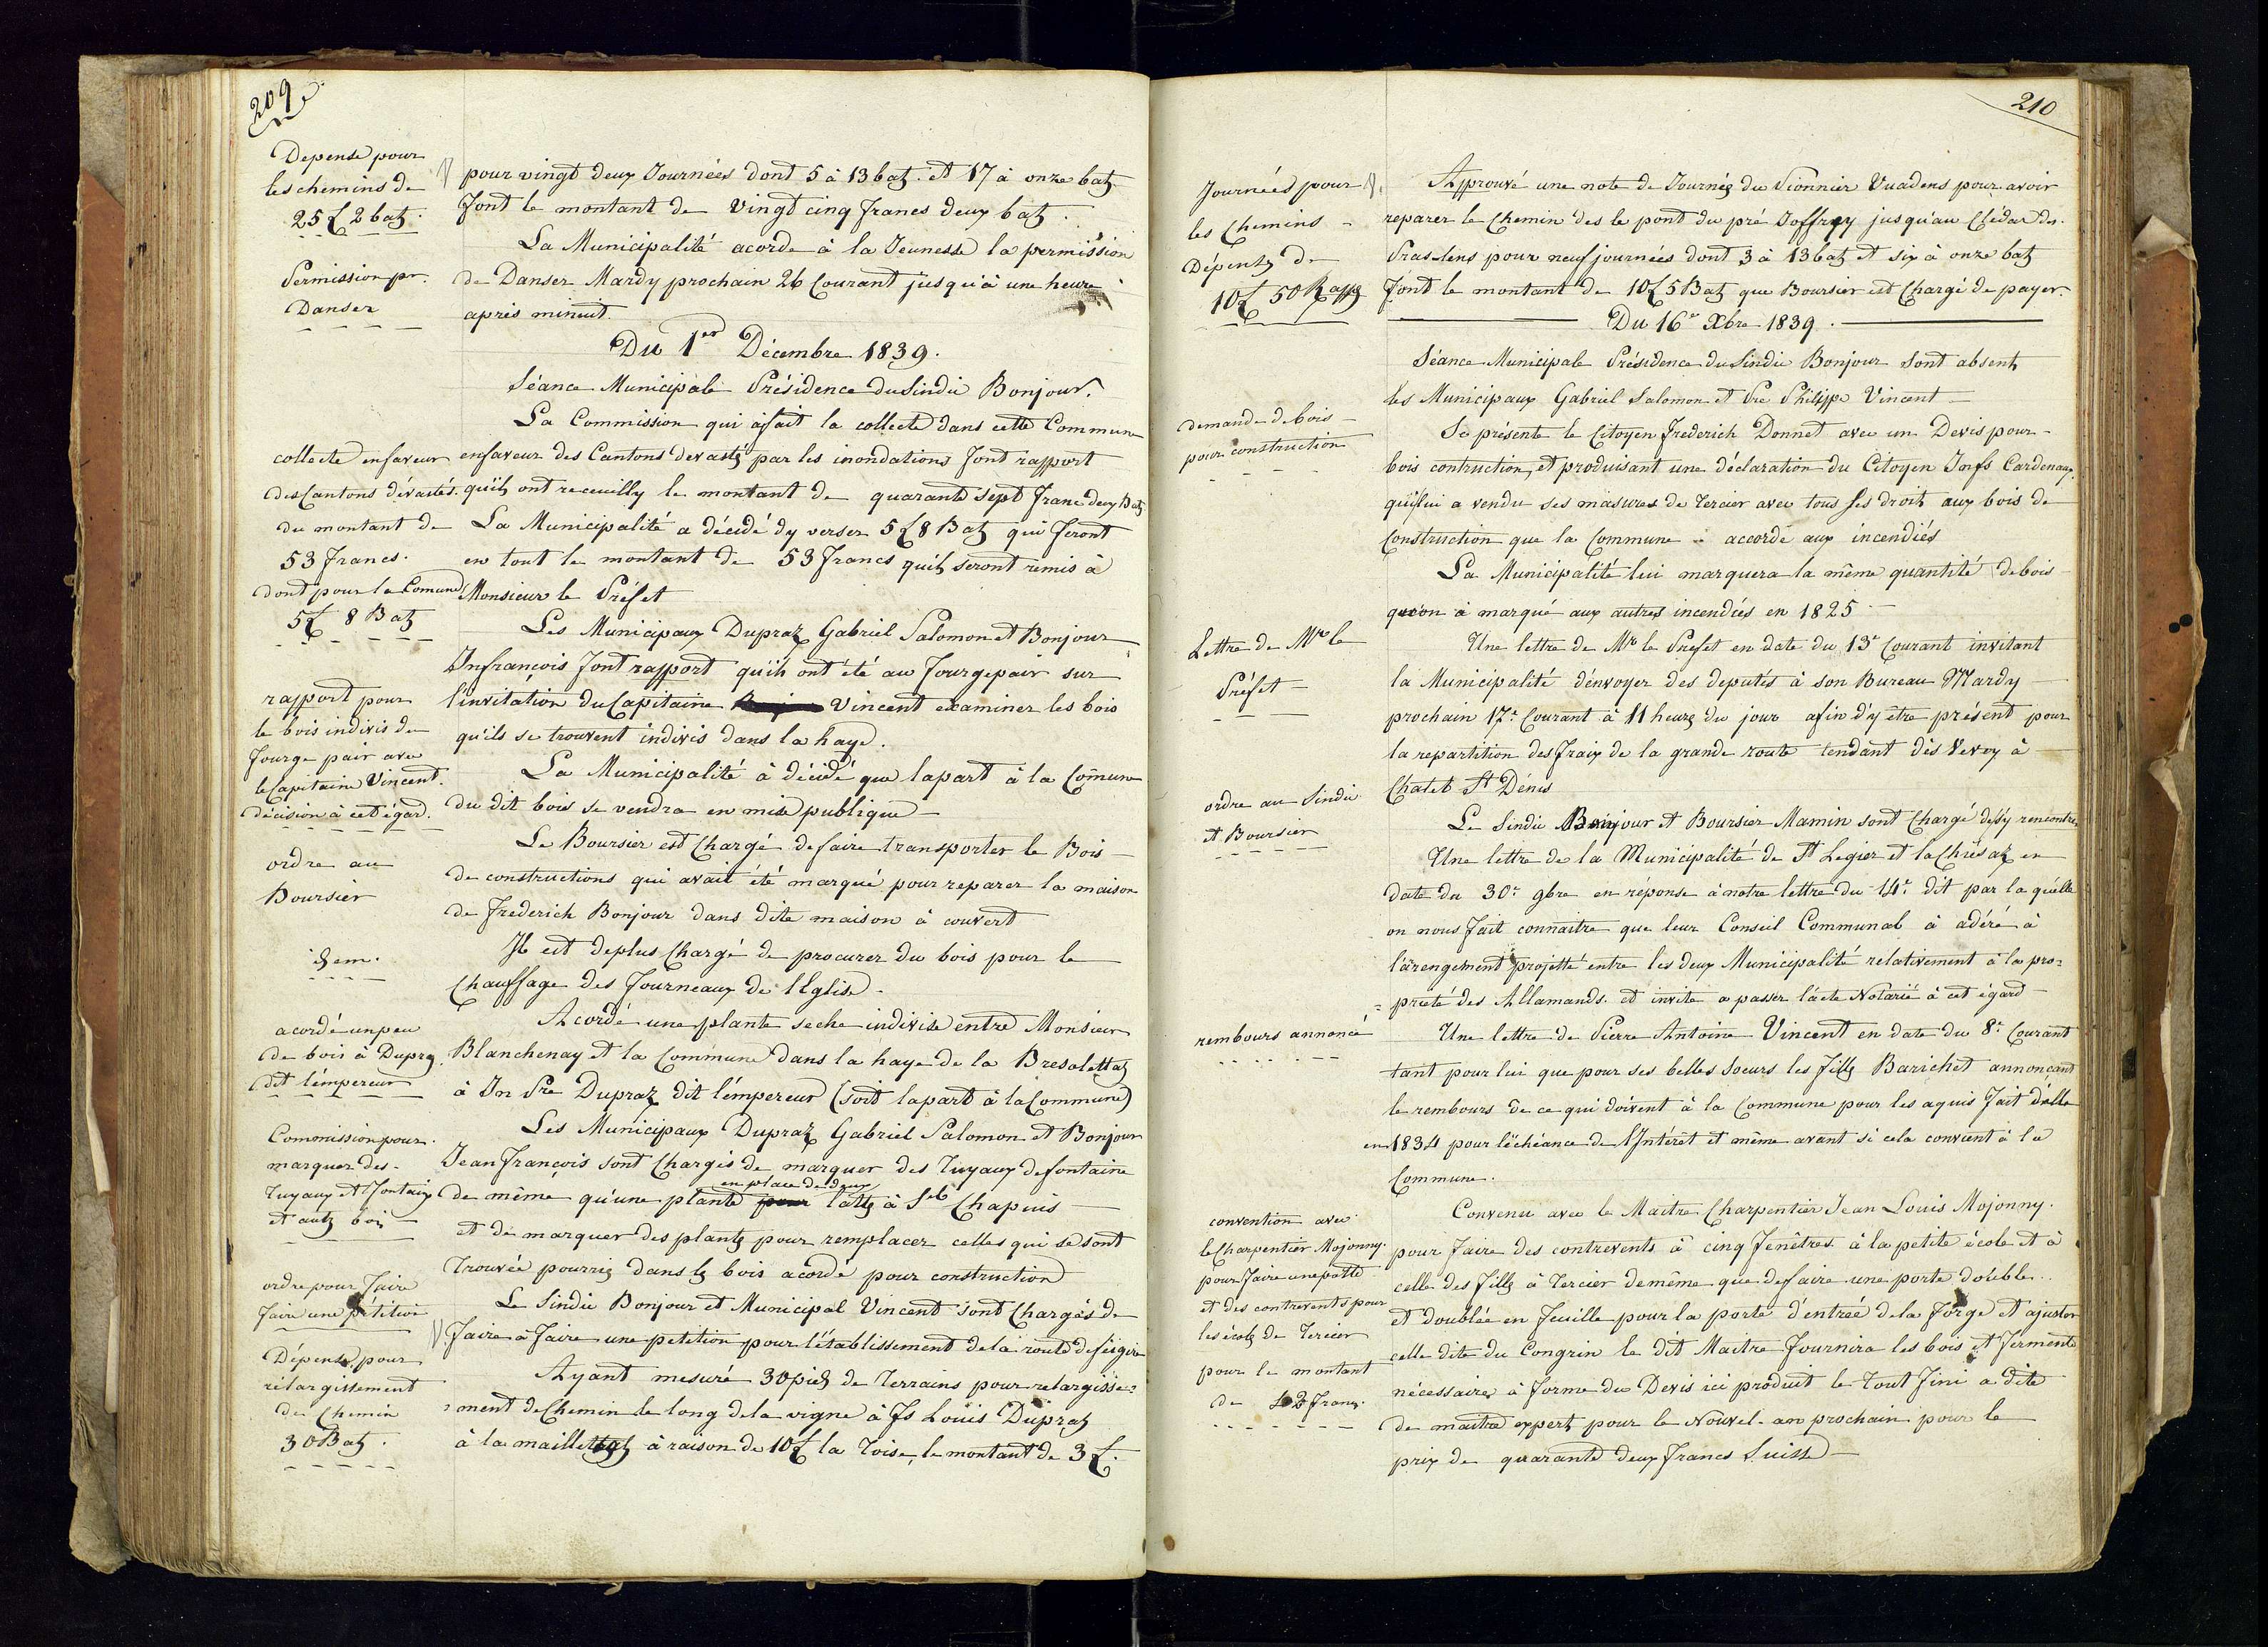 209
Depense pour
les chemins de
25 £ 2 batz.
pour vingt deux Journées dont 5 à 13 batz. et 17 à onze batz
font le montant de vingt cinq francs deux batz.
La Municipalité acorde à la Jeunesse la permission
Permission pr.
Danser
de Danser Mardy prochain 26 Courant jusqu'à une heure
après minuit.
Du 1er Décembre 1839.
Séance Municipale Présidence du Sindic Bonjour.
La Commission qui à fait la collecte dans cette Commune
collecte en faveur
des Cantons dévastés.
du montant de
53 francs.
dont pour la Comune
5£ 8 Batz
en faveur des Cantons devastés par les inondations font rapport
qu'ils ont receuilly le montant de quarante sept franc deux Batz
La Municipalité a décidé dy verser 5£ 8 Batz qui feront
en tout le montant de 53 francs qu'ils seront remis à
Monsieur le Préfet
Les Municipaux Dupraz Gabriel Salomon et Bonjour
Jn françois font rapport qu'ils ont été au Fourgepair sur
rapport pour
le bois indivis de
Fourge pair avec
le Capitaine Vincent.
décision à cet égard.
l'invitation du Capitaine Vincent examiner les bois
qu'ils se trouvent indivis dans la haye.
La Municipalité à décidé que la part à la Comune
du dit bois se vendra en mise publique
ordre au
Boursier
Le Boursier est Chargé de faire transporter le Bois
de constructions qui avait été marqué pour reparer la maison
de Frederich Bonjour dans dite maison à couvert
idem.
Il est de plus Chargé de procurer du bois pour le
Chauffage des Fourneaux de l'Eglise.
acordé un peu
de bois à Dupraz
dit l'émpereur
Acordé une plante seche indivise entre Monsieur
Blanchenay et la Commune dans la haye de la Bresolettaz
à Jn Pre Dupraz dit l'émpereur (soit la part à la Commune)
Commission pour.
marquer des
Tuyaux et Fontaine
et autz bois
Les Municipaux Dupraz Gabriel Salomon et Bonjour
Jean François sont Chargés de marquer des Tuyaux de fontaine
en place de deux
de même qu'une plante pour latte à Chapuis
et de marquer des plantz pour remplacer celles qui se sont
Trouvée pourriz dans lz bois acordé pour construction
ordre pour faire
faire une pétition
Le Sindic Bonjour et Municipal Vincent sont Chargés de
faire à faire une petition pour l'établissement de la route de feigire
Dépense pour
rélargissement
de Chemin
30 Batz.
Ayant mesuré 30 piés de Terrains pour relargisse=
=ment de Chemin le long de la vigne à Fs Louis Dupraz
à la maillettaz à raison de 10£ la Toise, le montant de 3£.
210
Journées pour
les Chemins
Dépentz de
10£ 50 Rappz
Approuvé une note de Journéz du Pionnier Vuadens pour avoir
reparer le Chemin des le pont du pré Joffrey jusqu'au Clédar des
Praslens pour neuf journées dont 3 à 13 batz et six à onze batz
font le montant de 10£ 5 Batz que Boursier est Chargé de payer.
Du 16e Xbre 1839.
Séance Municipale Présidence du Sindic Bonjour sont absents
les Municipaux Gabriel Salomon et Pre Philippe Vincent
demande de bois
pour construction
Se présente le Citoyen Frederich Donnet avec un Devis pour
bois contruction, et produisant une déclaration du Citoyen Jn fs Cardenaux,
qui lui a vendu ses masures de Tercier avec tous ses droits aux bois de
Construction que la Commune à accordé aux incendiés
La Municipalité lui marquera la même quantité de bois
qu'on à marqué aux autres incendiés en 1825
Lettre de Mr le
Préfet
Une lettre de Mr le Prefet en date du 13e Courant invitant
la Municipalité d'énvoyer des deputés à son Bureau Mardy
prochain 17e Courant à 11 heures du jour afin d'y être présent pour
la repartition des fraix de la grande route tendant dès Vevey à
Chatel St Dénis
ordre au Sindic
et Boursier
Le Sindic Bonjour et Boursier Mamin sont Chargé de s'y rencontrer
Une lettre de la Municipalité de St Legier et la Chiésaz en
date du 30e 9bre en réponse à notre lettre du 14e dit par la quélle
on nous fait connaitre que leur Conseil Communal à adéré à
l'arengement projetté entre les deux Municipalité rélativement à la pro=
=prieté des Allamands. et invite a passer l'ácte Notarié à cet égard
rembours annoncé
Une lettre de Pierre Antoine Vincent en date du 8e Courant
tant pour lui que pour ses belles Soeurs les fillz Barichet annonçant
le rembours de ce qui doivent à la Commune pour les aquis fait d'elle
en 1834 pour l'échéance de l'Intérêt et même avant si cela convient à la
Commune.
convention avec
le Charpentier Mojonny.
pour faire une porte
et des contrevents pour
les écolz de Tercier
pour le montant
de 42 franz.
Convenu avec le Maitre Charpentier Jean Louis Mojonny.
pour faire des contrevents à cinq fenêtres à la petite école et à
celle des fillz à Tercier de même que de faire une porte double
et doublée en feuille pour la porte d'entreé de la Forge et ajuster
celle dite du Congrin le dit Maitre fournira les bois et fermente
nécessaires à forme du Devis ici produit le Tout fini a dite
de maitre expert pour le Nouvel-an prochain pour le
prix de quarante deux francs Suisse